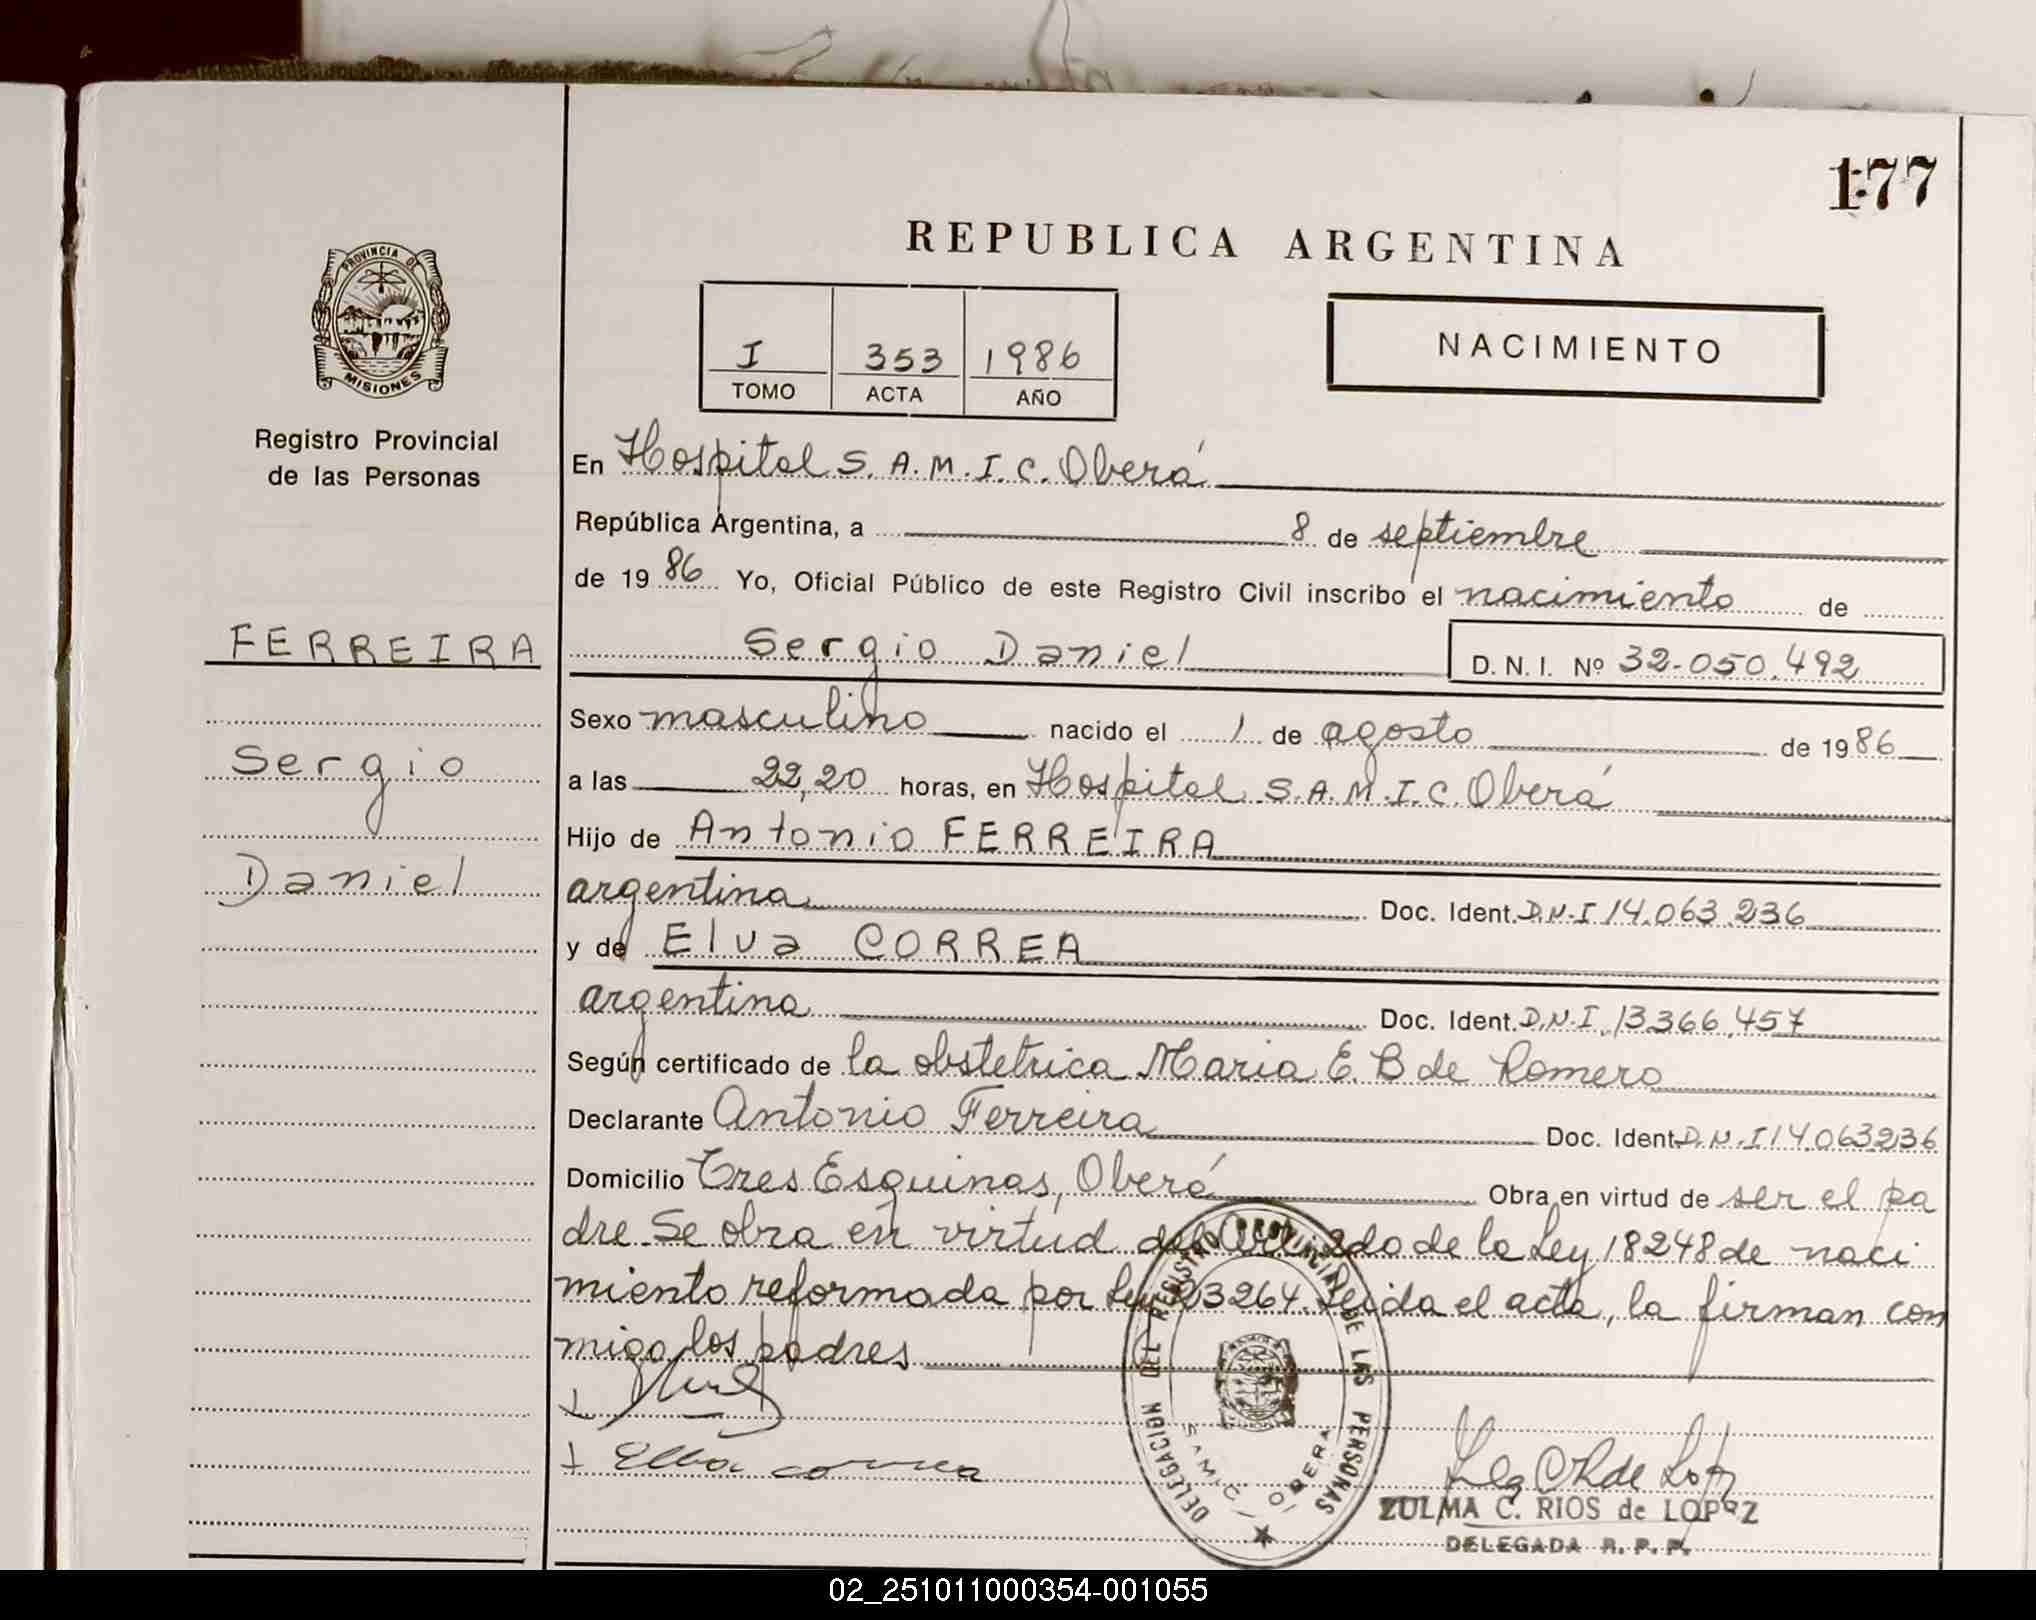 177
REPUBLICA ARGENTINA
PROVINCIA DE
MISIONES
Registro Provincial
de las Personas
I 353 1986
TOMO ACTA AÑO
NACIMIENTO
En Hospital S.A.M.I.C. Oberá
República Argentina, a 8 de septiembre
de 1986 Yo, Oficial Público de este Registro Civil inscribo el nacimiento de
FERREIRA
Sergio
Daniel
Sergio Daniel
D.N.I. Nº 32.050.492
Sexo masculino nacido el 1 de agosto de 1986
a las 22,20 horas, en Hospital S.A.M.I.C. Oberá
Hijo de Antonio FERREIRA
argentina Doc. Ident. D.N.I 14.063.236
y de Elva CORREA
argentina Doc. Ident. D.N.I. 13366.457
Según certificado de la obstetrica Maria E. B de Romero
Declarante Antonio Ferreira Doc. Ident. D.N.I 14.063236
Domicilio Tres Esquinas, Oberá Obra en virtud de ser el pa
dre. Se obra en virtud del de la Ley 18248 de naci
miento reformada por Ley 23264. Leida el acta, la firman con
migo los padres
Elba correa
DELEGACION DEL REGISTRO PROVINCIAL DE LAS PERSONAS
SAMIC OBERA
ZULMA C. RIOS de LOPEZ
DELEGADA R. P. P.
02_251011000354-001055